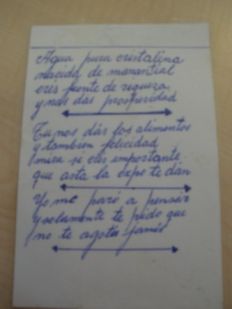 Agua pura cristalina
nacida de manantial
eres fuente de riqueza
y nos das prosperidad
Tu nos das los alimentos
y tambien felicidad
mira si eres importante
que asta la expo te dan
Yo me paro a pensar
y solamente te pido que
no te agotes jamás